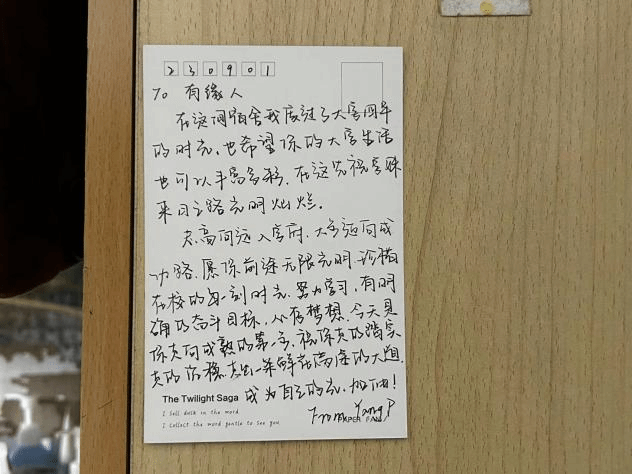 230901
To 有缘人
在这间宿舍我度过了大学四年
的时光,也希望你的大学生活
也可以丰富多彩,在这先祝学妹
来日之路光明灿烂。
志高向远入学府,大步迈向成
功路,愿你前途无限光明,珍惜
在校的每一刻时光,努力学习,有明
确的奋斗目标,心存梦想,今天是
你走向成熟的第一步,祝你走的踏实
走的沉稳,走出一条鲜花满途的大道
成为自己的光,加油!
The Twilight Saga
I Sell dusk in the word
I Collect the word gentle to see you
From Yang P